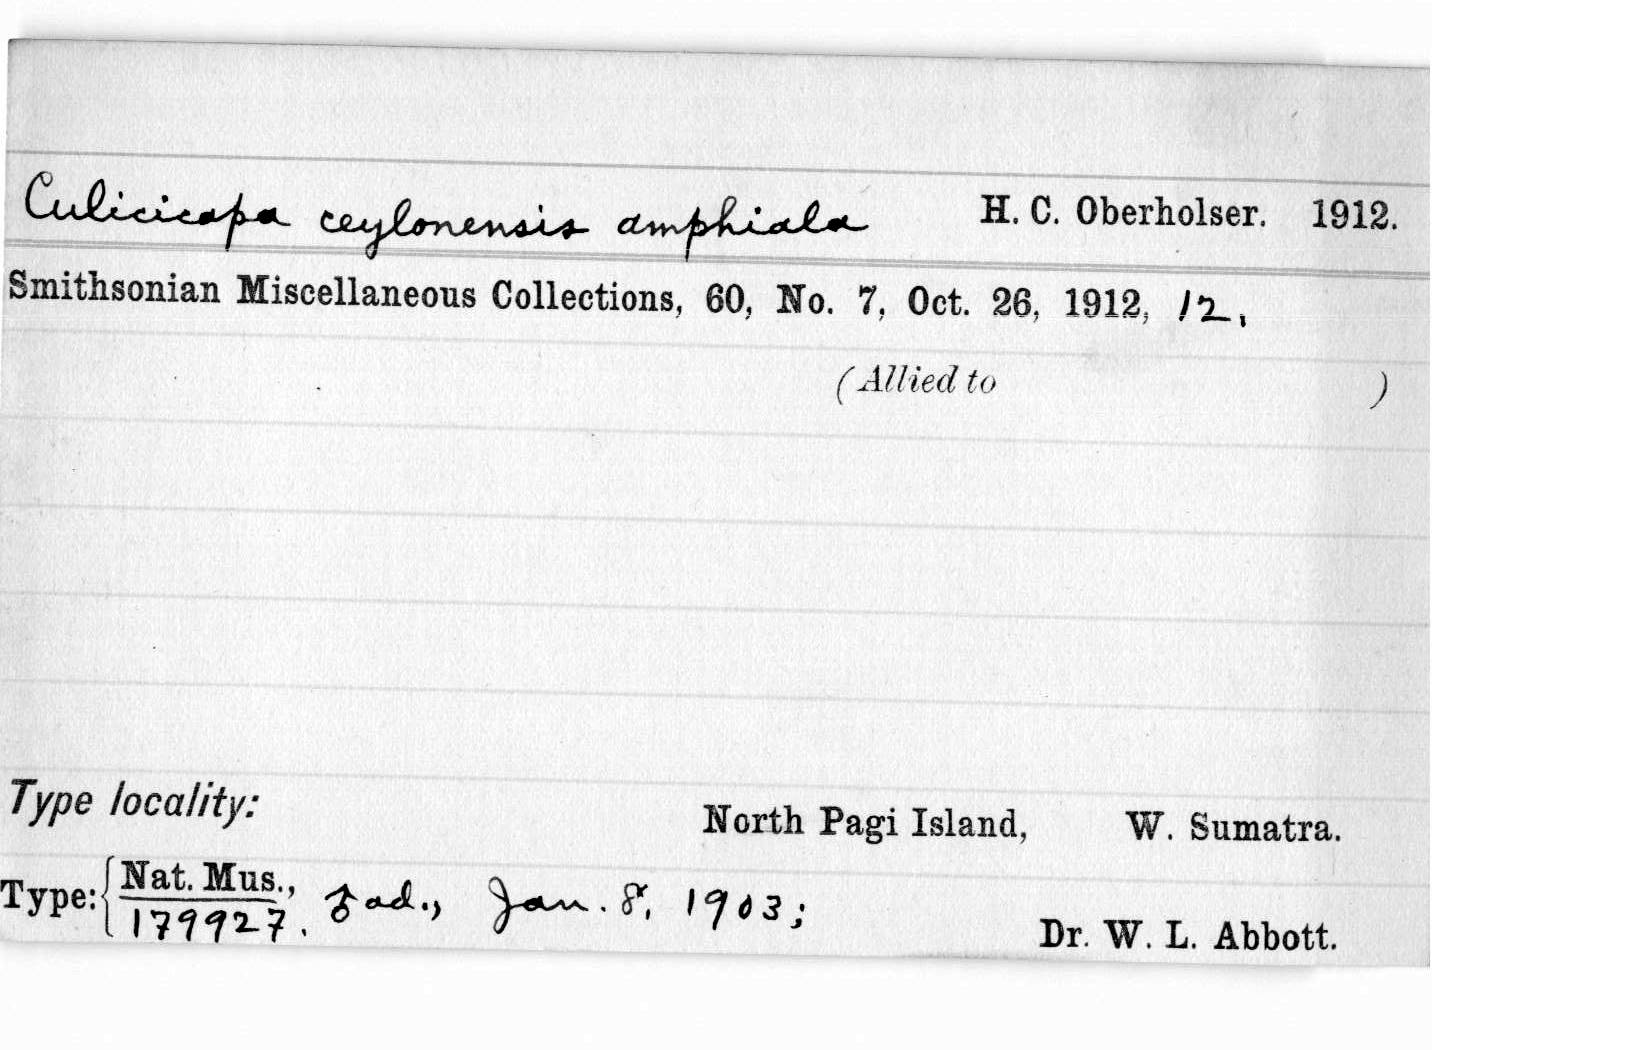 Culicicapa ceylonensis amphiala H. C. Oberholser. 1912.
Smithsonian Miscellaneous Collections, 60, No. 7, Oct. 26, 1912, 12,
(Allied to )
Type locality:
North Pagi Island, W. Sumatra.
Type: { Nat. Mus.,
179927. ad., Jan. 8, 1903;
Dr. W. L. Abbott.